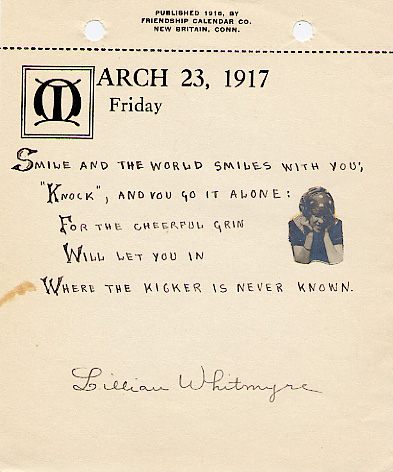 PUBLISHED 1916, BY
FRIENDSHIP CALENDAR CO.
NEW BRITAIN, CONN.
MARCH 23, 1917
Friday
SMILE AND THE WORLD SMILES WITH YOU;
"KNOCK", AND YOU GO IT ALONE:
FOR THE CHEERFUL GRIN
WILL LET YOU IN
WHERE THE KICKER IS NEVER KNOWN.
Lillian Whitmyre